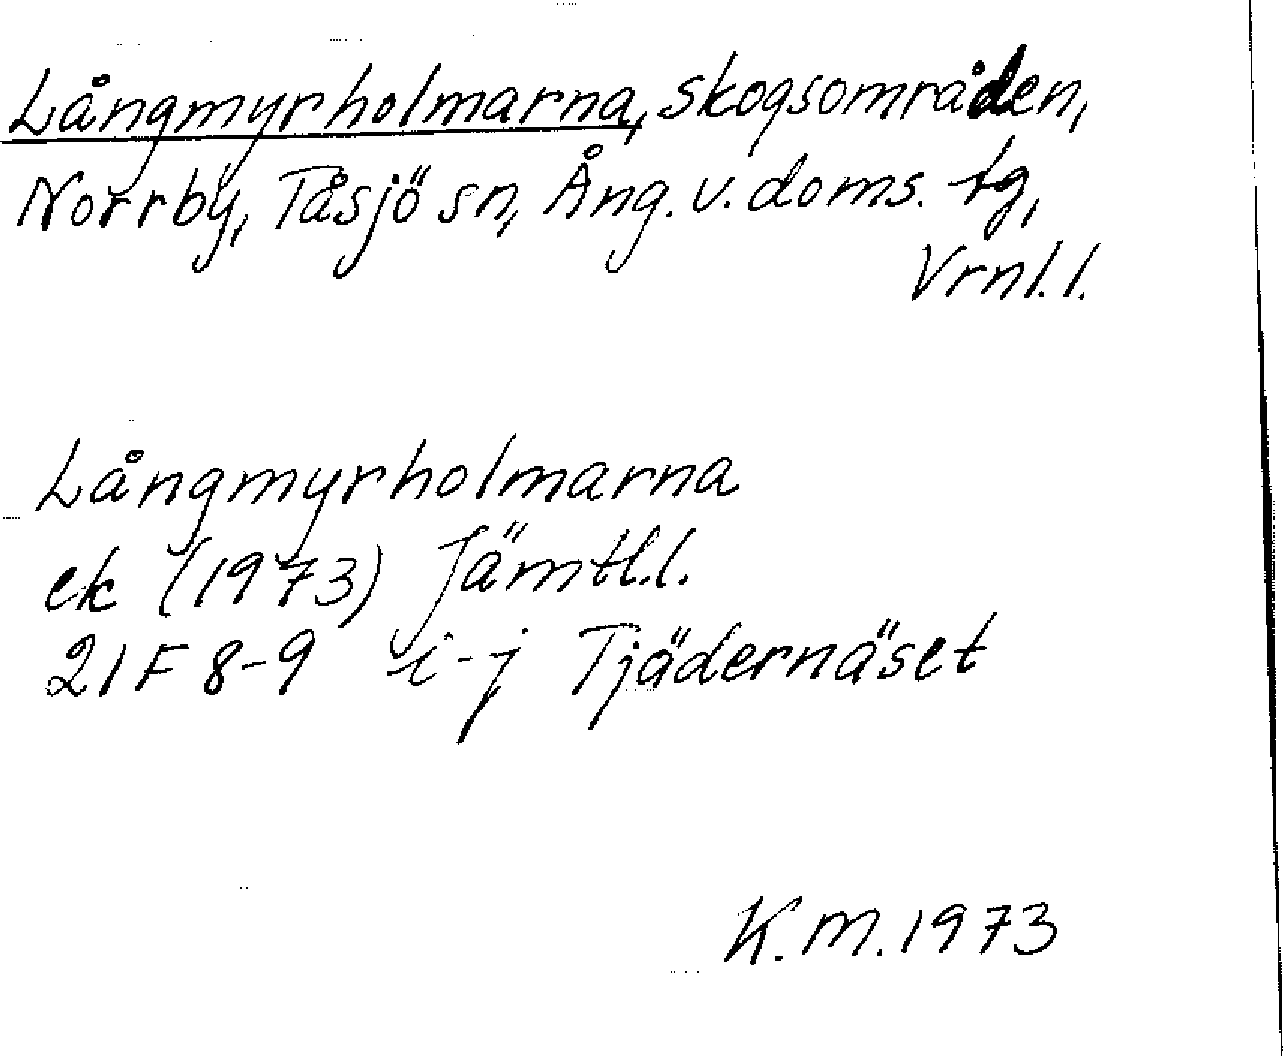 Långmyrholmarna, skogsområden,
Norrby, Tåsjö sn, Ång. v. doms. tg,
Vrnl. l.
Långmyrholmarna
ek (1973) Jämtl.l.
21F 8-9 i-j Tjädernäset
K.M. 1973